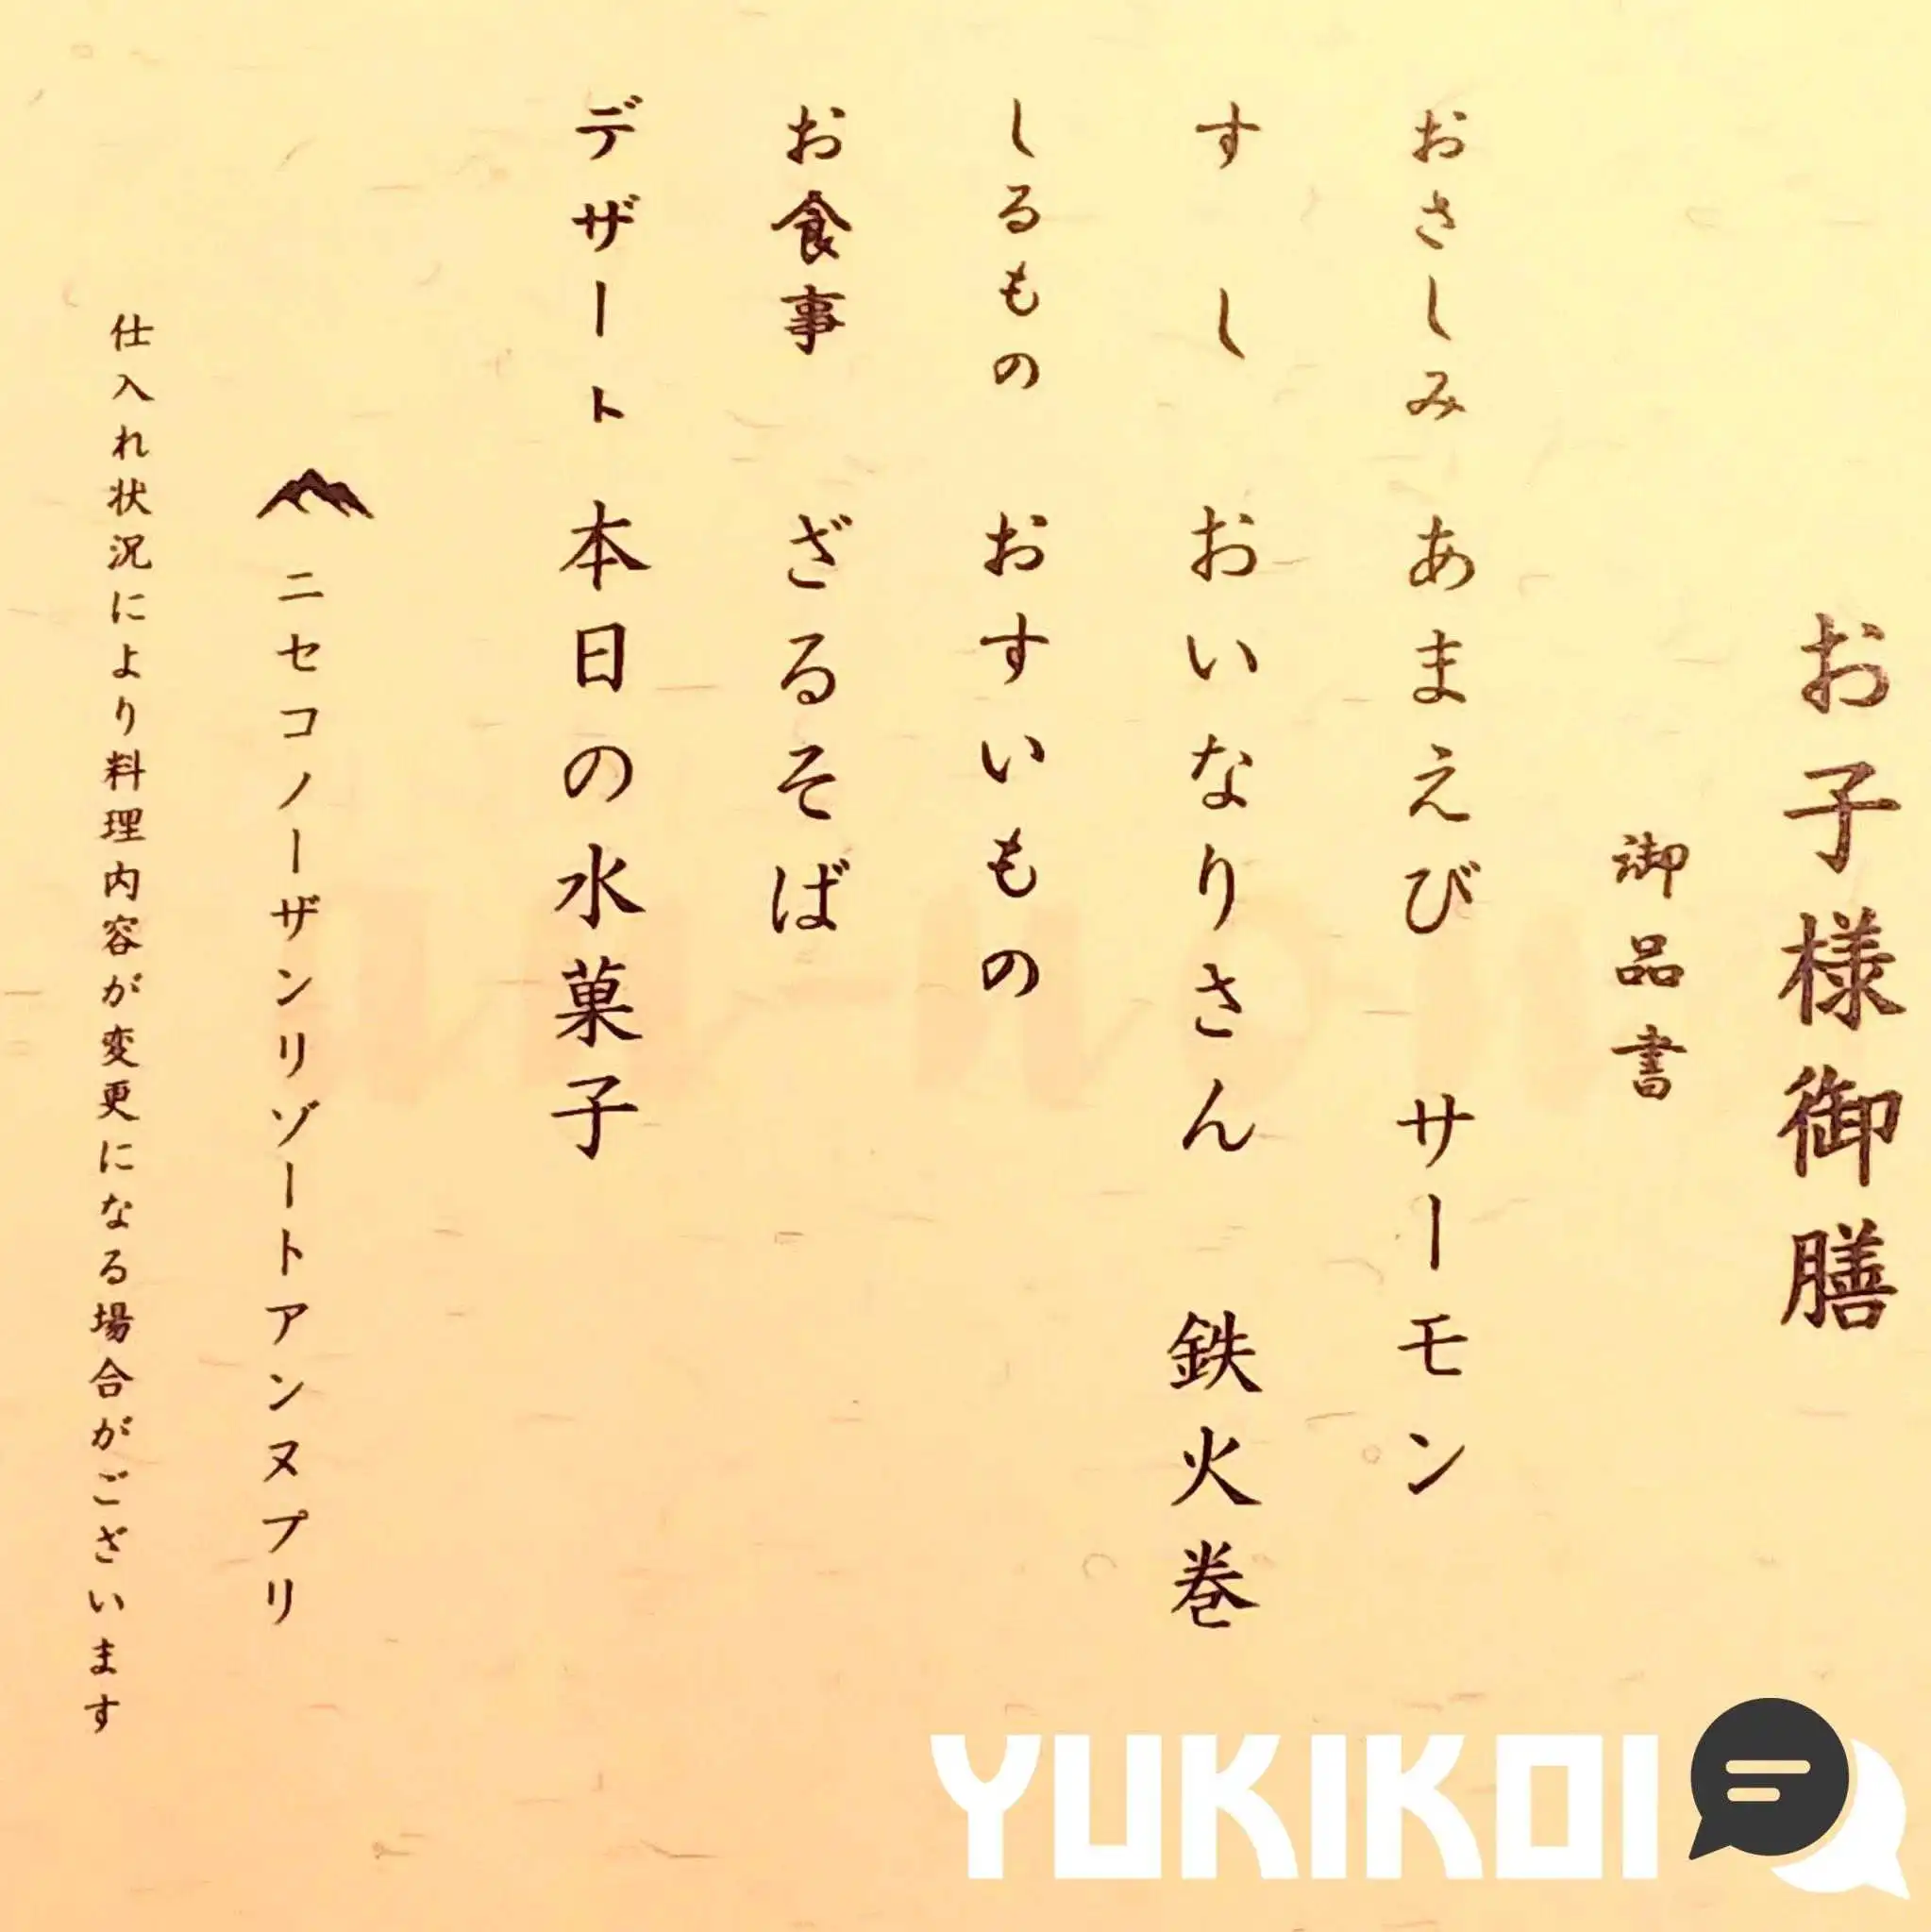 お子様御膳
御品書
おさしみ　あまえび　サーモン
すし　おいなりさん　鉄火巻
しるもの　おすいもの
お食事　ざるそば
デザート　本日の水菓子
ニセコノーザンリゾートアンヌプリ
仕入れ状況により料理内容が変更になる場合がございます
YUKIKOI